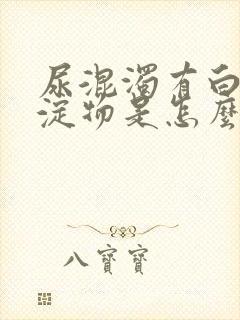 尿混濁有白
淀物是怎麼
八寶寶